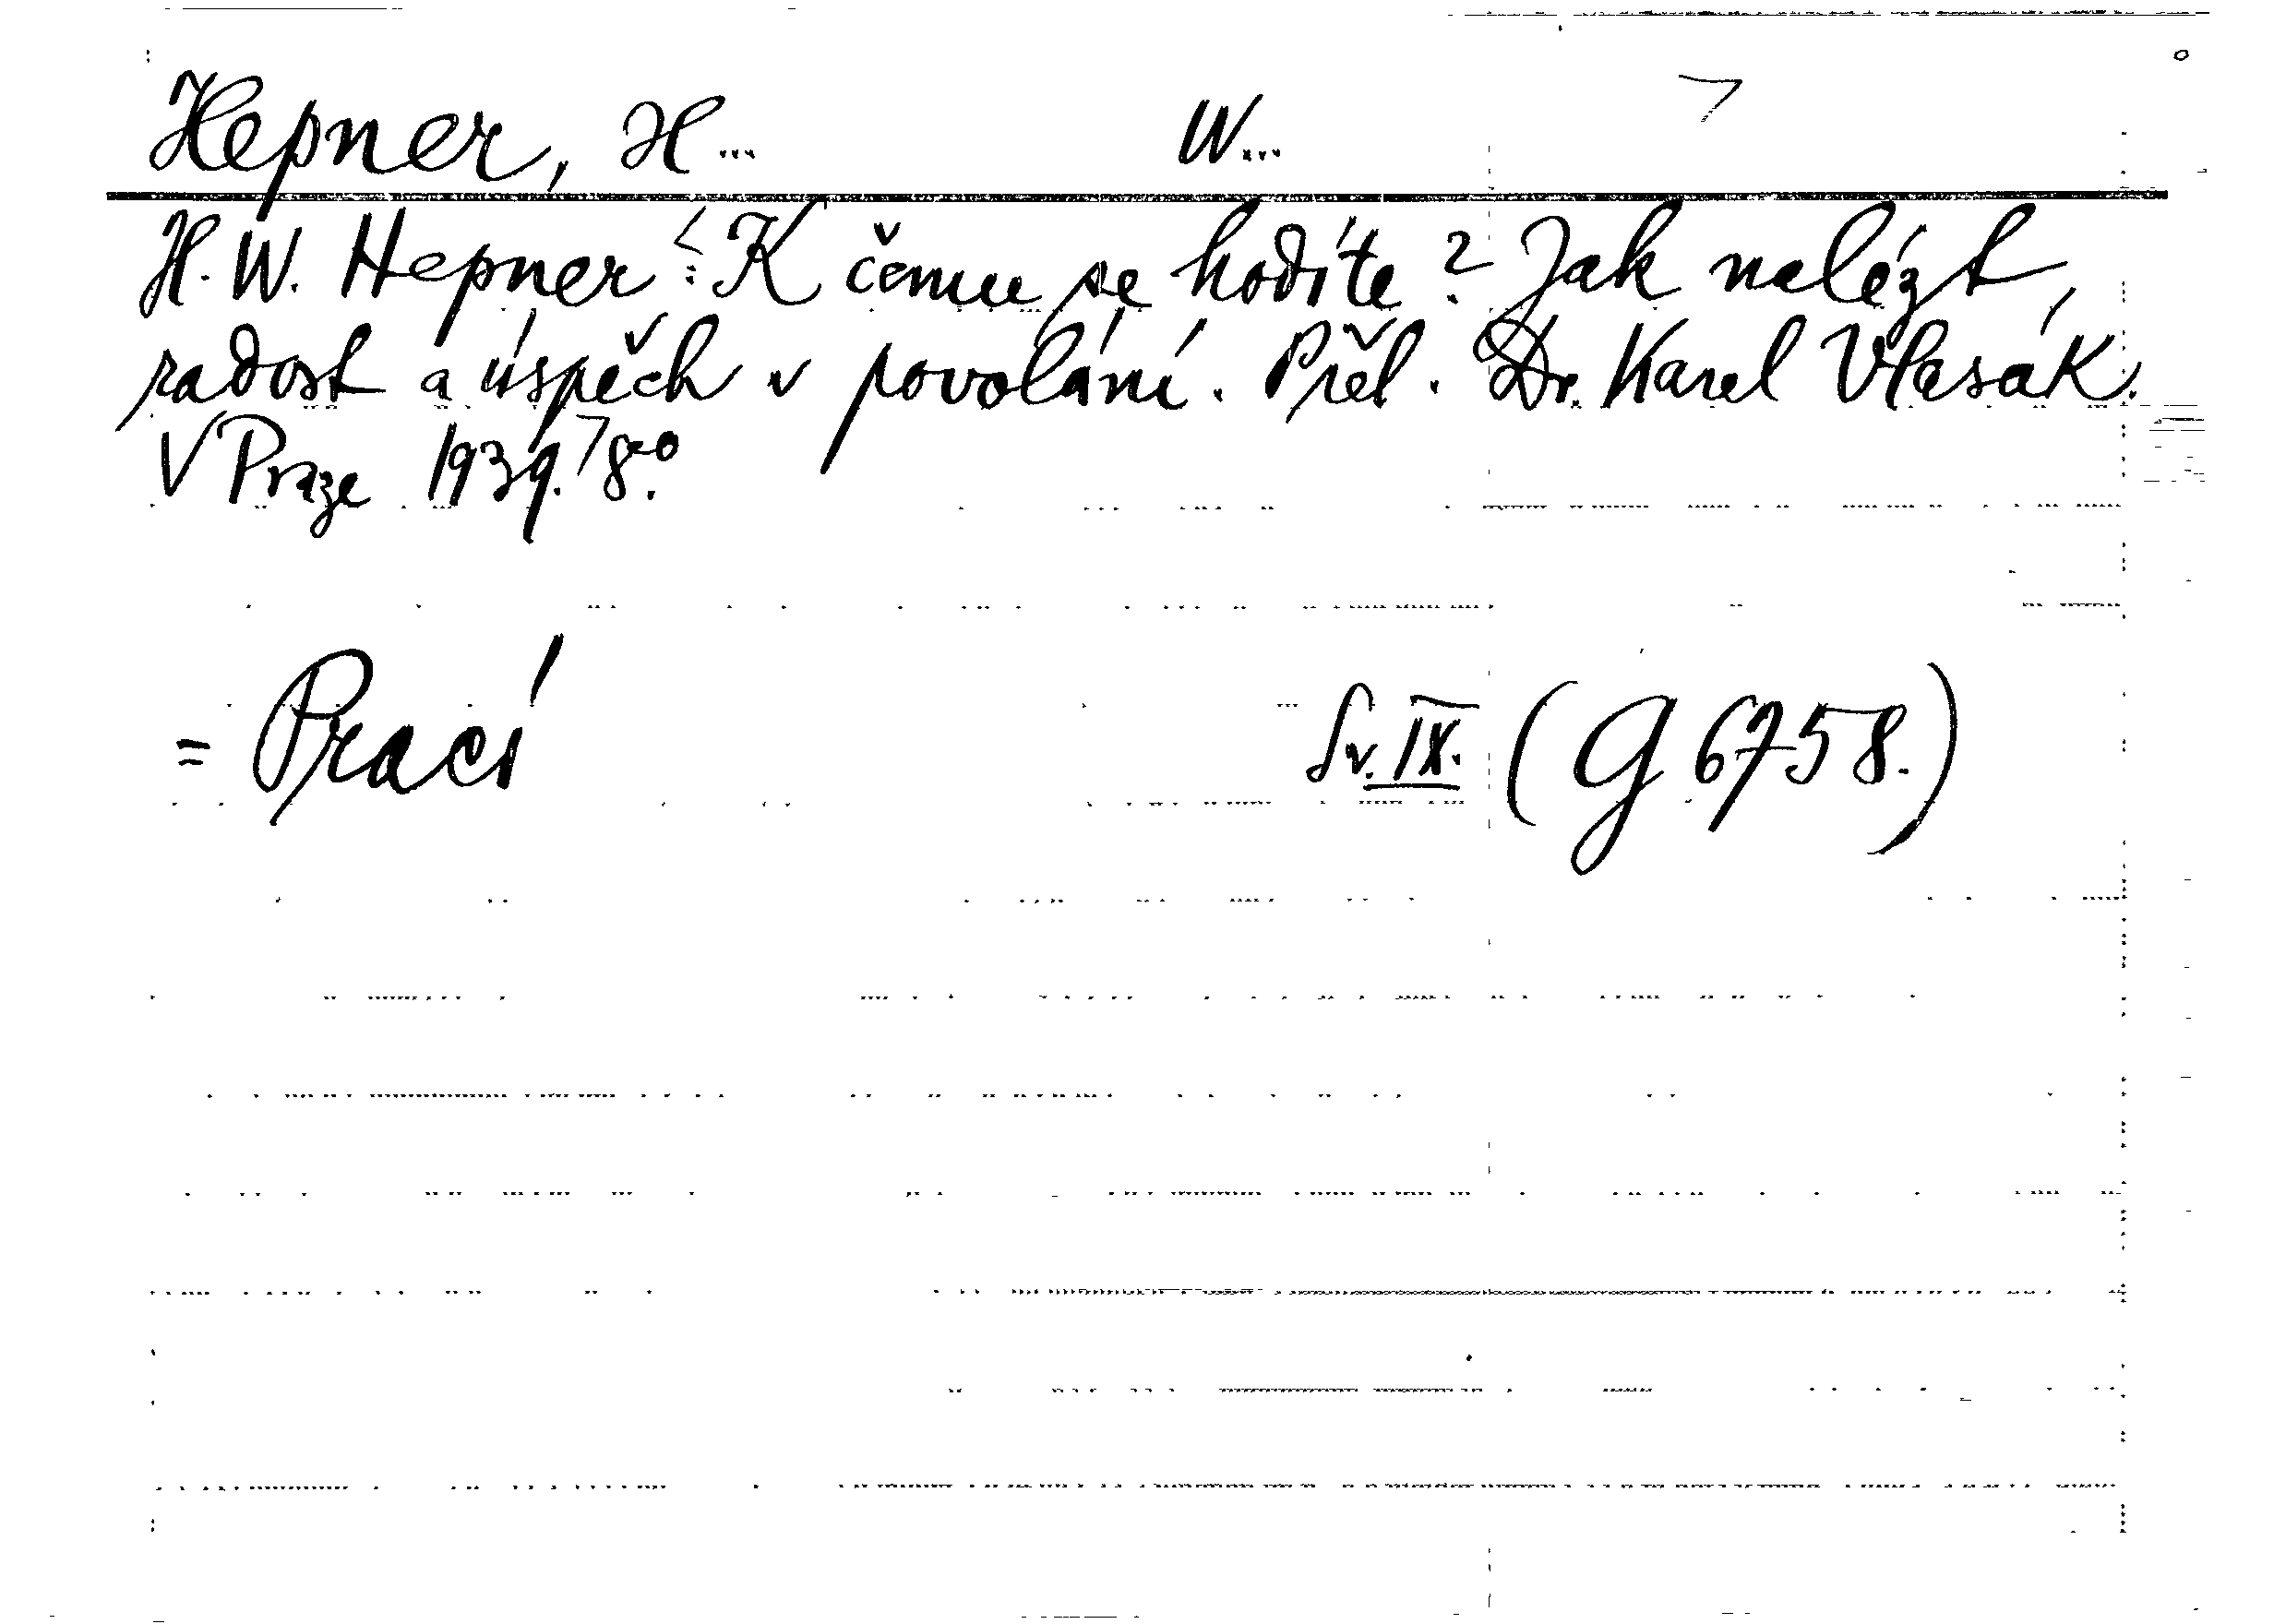 Hepner, H... W...
H. W. Hepner: K čemu se hodíte? Jak nalézt
radost a úspěch v povolání. Přel. Dr. Karel Vlasák.
V Praze 1939. 8°.
= Prací Sv. IX. (G 6758.)